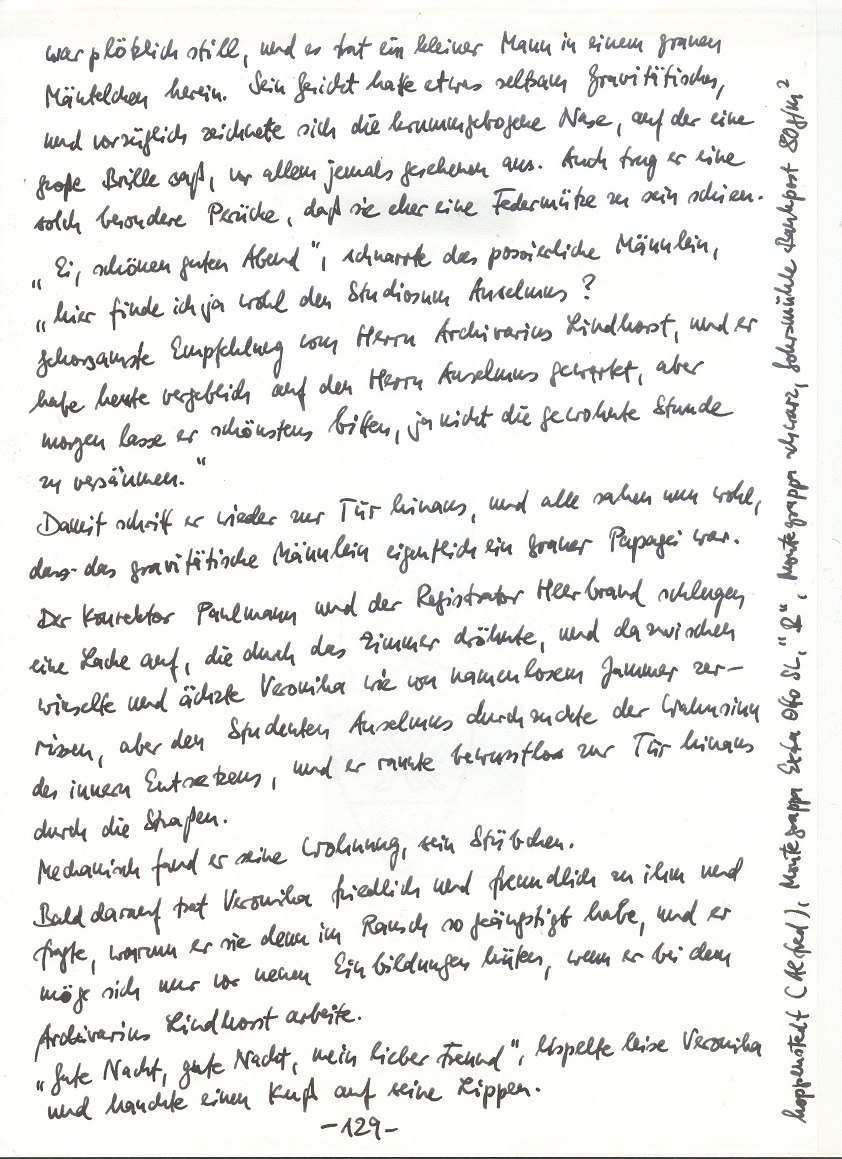 war plötzlich still, und es trat ein kleiner Mann in einem grauen
Mäntelchen herein. Sein Gesicht hatte etwas seltsam Gravitätisches,
und vorzüglich zeichnete sich die krummgebogene Nase, auf der eine
große Brille saß, vor allem jemals gesehenen aus. Auch trug er eine
solch besondere Perücke, daß sie eher eine Federmütze zu sein schien.
„Ei, schönen guten Abend", schnarrte das possierliche Männlein,
„hier finde ich ja wohl den Studiosum Anselmus?
gehorsamste Empfehlung vom Herrn Archivarius Lindhorst, und er
habe heute vergeblich auf den Herrn Anselmus gewartet, aber
morgen lasse er schönstens bitten, ja nicht die gewohnte Stunde
zu versäumen."
Damit schritt er wieder zur Tür hinaus, und alle sahen nun wohl,
dass das gravitätische Männlein eigentlich ein grauer Papagei war.
Der Konrektor Paulmann und der Registrator Heerbrand schlugen
eine Lache auf, die durch das Zimmer dröhnte, und dazwischen
winselte und ächzte Veronika wie von namenlosem Jammer zer-
rissen, aber den Studenten Anselmus durchzuckte der Wahnsinn
des innern Entsetzens, und er rannte bewusstlos zur Tür hinaus
durch die Straßen.
Mechanisch fand er seine Wohnung, sein Stübchen.
Bald darauf trat Veronika friedlich und freundlich zu ihm und
fragte, warum er sie denn im Rausch so geängstigt habe, und er
möge sich nur vor neuen Einbildungen hüten, wenn er bei dem
Archivarius Lindhorst arbeite.
„Gute Nacht, gute Nacht, mein lieber Freund", lispelte leise Veronika
und hauchte einen Kuß auf seine Lippen.
-129-
hoppenstedt (Alfred), Montegrappa Extra Otto SL, "B", Montegrappa schwarz, Gohrsmühle Bankpost 80g/m²